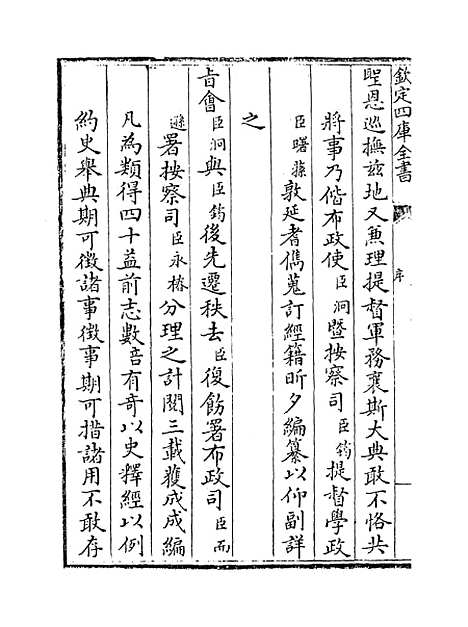 欽定四庫全書
序
聖恩巡撫茲地又兼理提督軍務襄斯大典敢不恪共
將事乃偕布政使臣泂暨按察司臣鈞提督學政
臣曙蓀敦延耆儁蒐訂經籍昕夕編纂以仰副詳
之
旨會臣泂與臣鈞後先遷秩去臣復飭署布政司臣而
遜署按察司臣永椿分理之計閲三載獲成成編
凡為類得四十益前志數咅有奇以史釋經以例
約史舉典期可徵諸事徵事期可措諸用不敢存